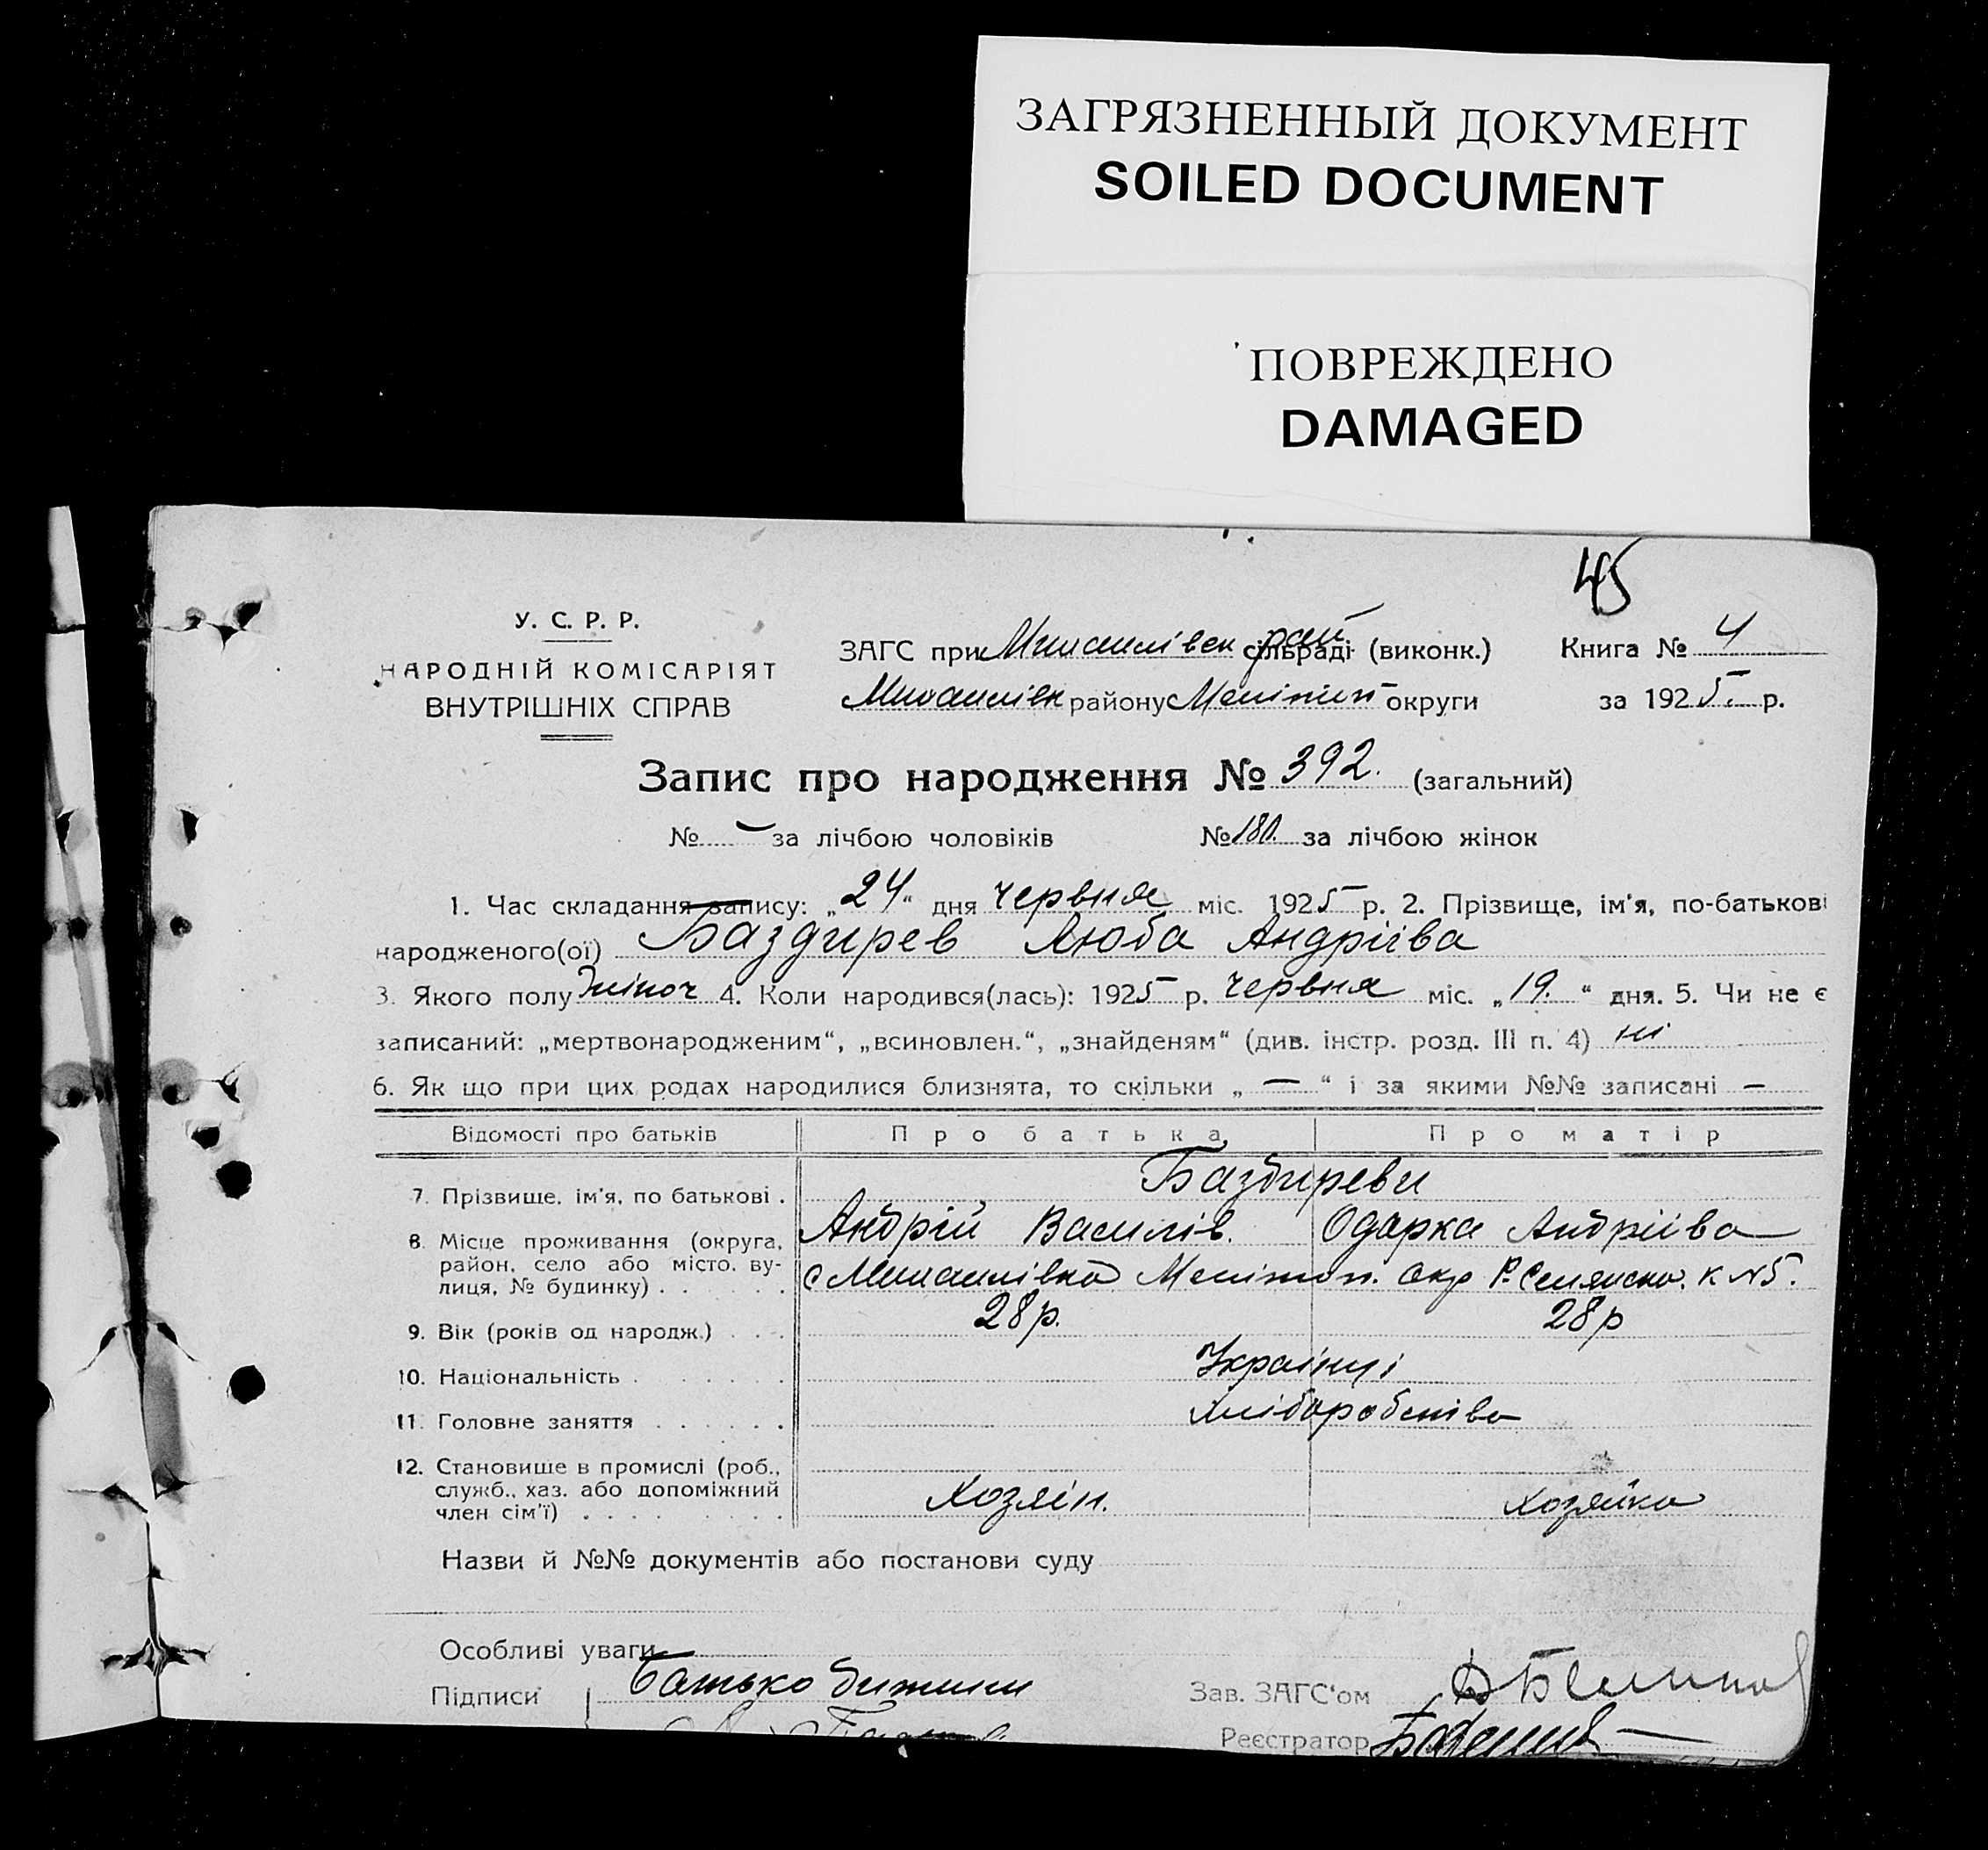 ЗАГРЯЗНЕННЫЙ ДОКУМЕНТ
SOILED DOCUMENT
ПОВРЕЖДЕНО
DAMAGED
45
У. С. Р. Р.
НАРОДНІЙ КОМІСАРІЯТ
ВНУТРІШНІХ СПРАВ
ЗАГС при Михайлівск рай сільраді (виконк.)
Михайлівк району Мелітоп округи
Книга № 4
за 1925 р.
Запис про народження № 392. (загальний)
№ – за лічбою чоловіків № 180. за лічбою жінок
1. Час складання запису: „24“ дня червня міс. 1925 р. 2. Прізвище, ім'я, по-батькові
народженого(ої) Баздирев Люба Андріїва
3. Якого полу жіноч 4. Коли народився(лась): 1925 р. червня міс. „19.“ дня. 5. Чи не є
записаний: „мертвонародженим“, „всиновлен.“, „знайденям“ (див. інстр. розд. III п. 4) ні
6. Як що при цих родах народилися близнята, то скільки „—“ і за якими №№ записані —
Відомості про батьків Про батька Про матір
7. Прізвище, ім'я, по батькові . Баздиреви
Андрій Василів. Одарка Андріїва
8. Місце проживання (округа,
район, село або місто, ву-
лиця, № будинку) . . . . . . с Михайлівка Мелітоп. окр Р. к №5.
9. Вік (років од народж.) . . . 28р. 28р
10. Національність . . . . . . Українці
11. Головне заняття . . . . . . хліборобство
12. Становище в промислі (роб.,
служб., хаз. або допоміжний
член сім'ї) . . . . . . . . Хозяін. хозяйка
Назви й №№ документів або постанови суду
Особливі уваги
Підписи Батько дитини
Зав. ЗАГС'ом
Реєстратор